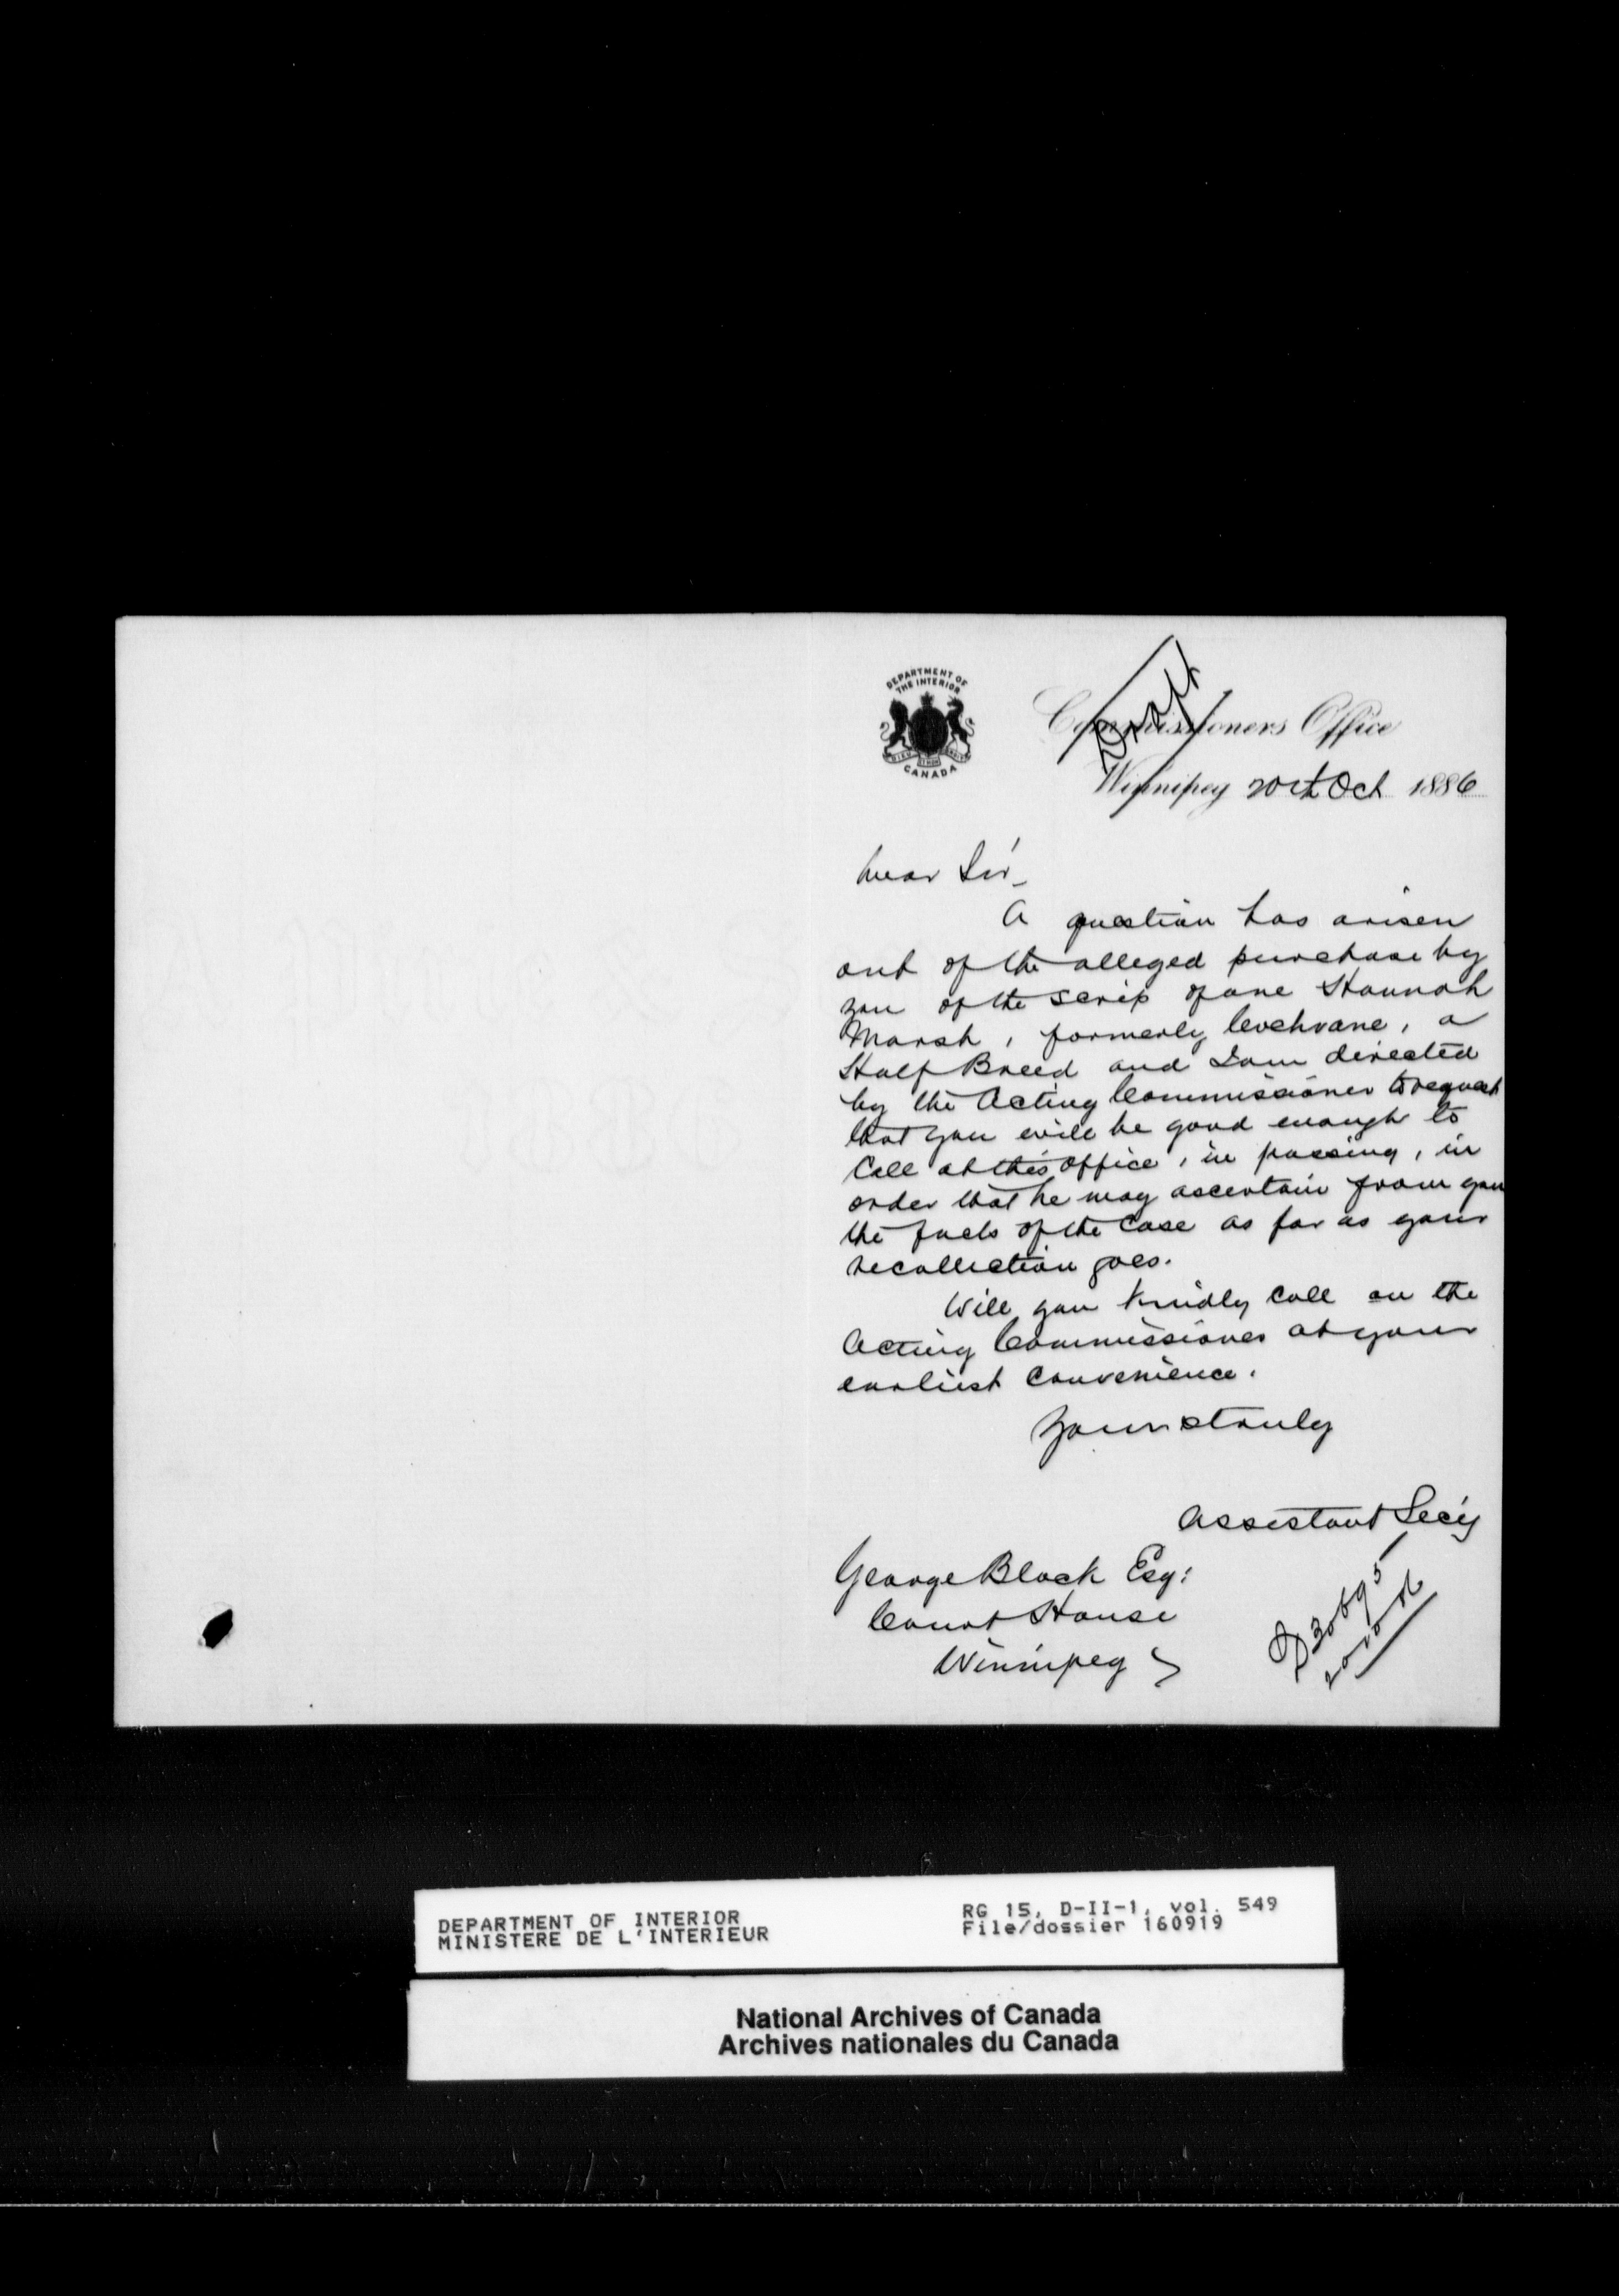 DEPARTMENT OF
THE INTERIOR
CANADA
Draft
Commissioners Office
Winnipeg 20th Oct 1886
Dear Sir,
A question has arisen
out of the alleged purchase by
you of the scrip of one Hannah
Marsh, formerly Cochrane, a
Half Breed and I am directed
by the Acting Commissioner to request
that you will be good enough to
Call at this office, in passing, in
order that he may ascertain from you
the facts of the case as far as your
recollection goes.
Will you kindly call on the
Acting Commissioner at your
earliest Convenience.
Yours truly
Assistant Secy
George Black Esq:
Court House
Winnipeg
DEPARTMENT OF INTERIOR
MINISTERE DE L'INTERIEUR
RG 15, D-II-1, vol. 549
File/dossier 160919
National Archives of Canada
Archives nationales du Canada